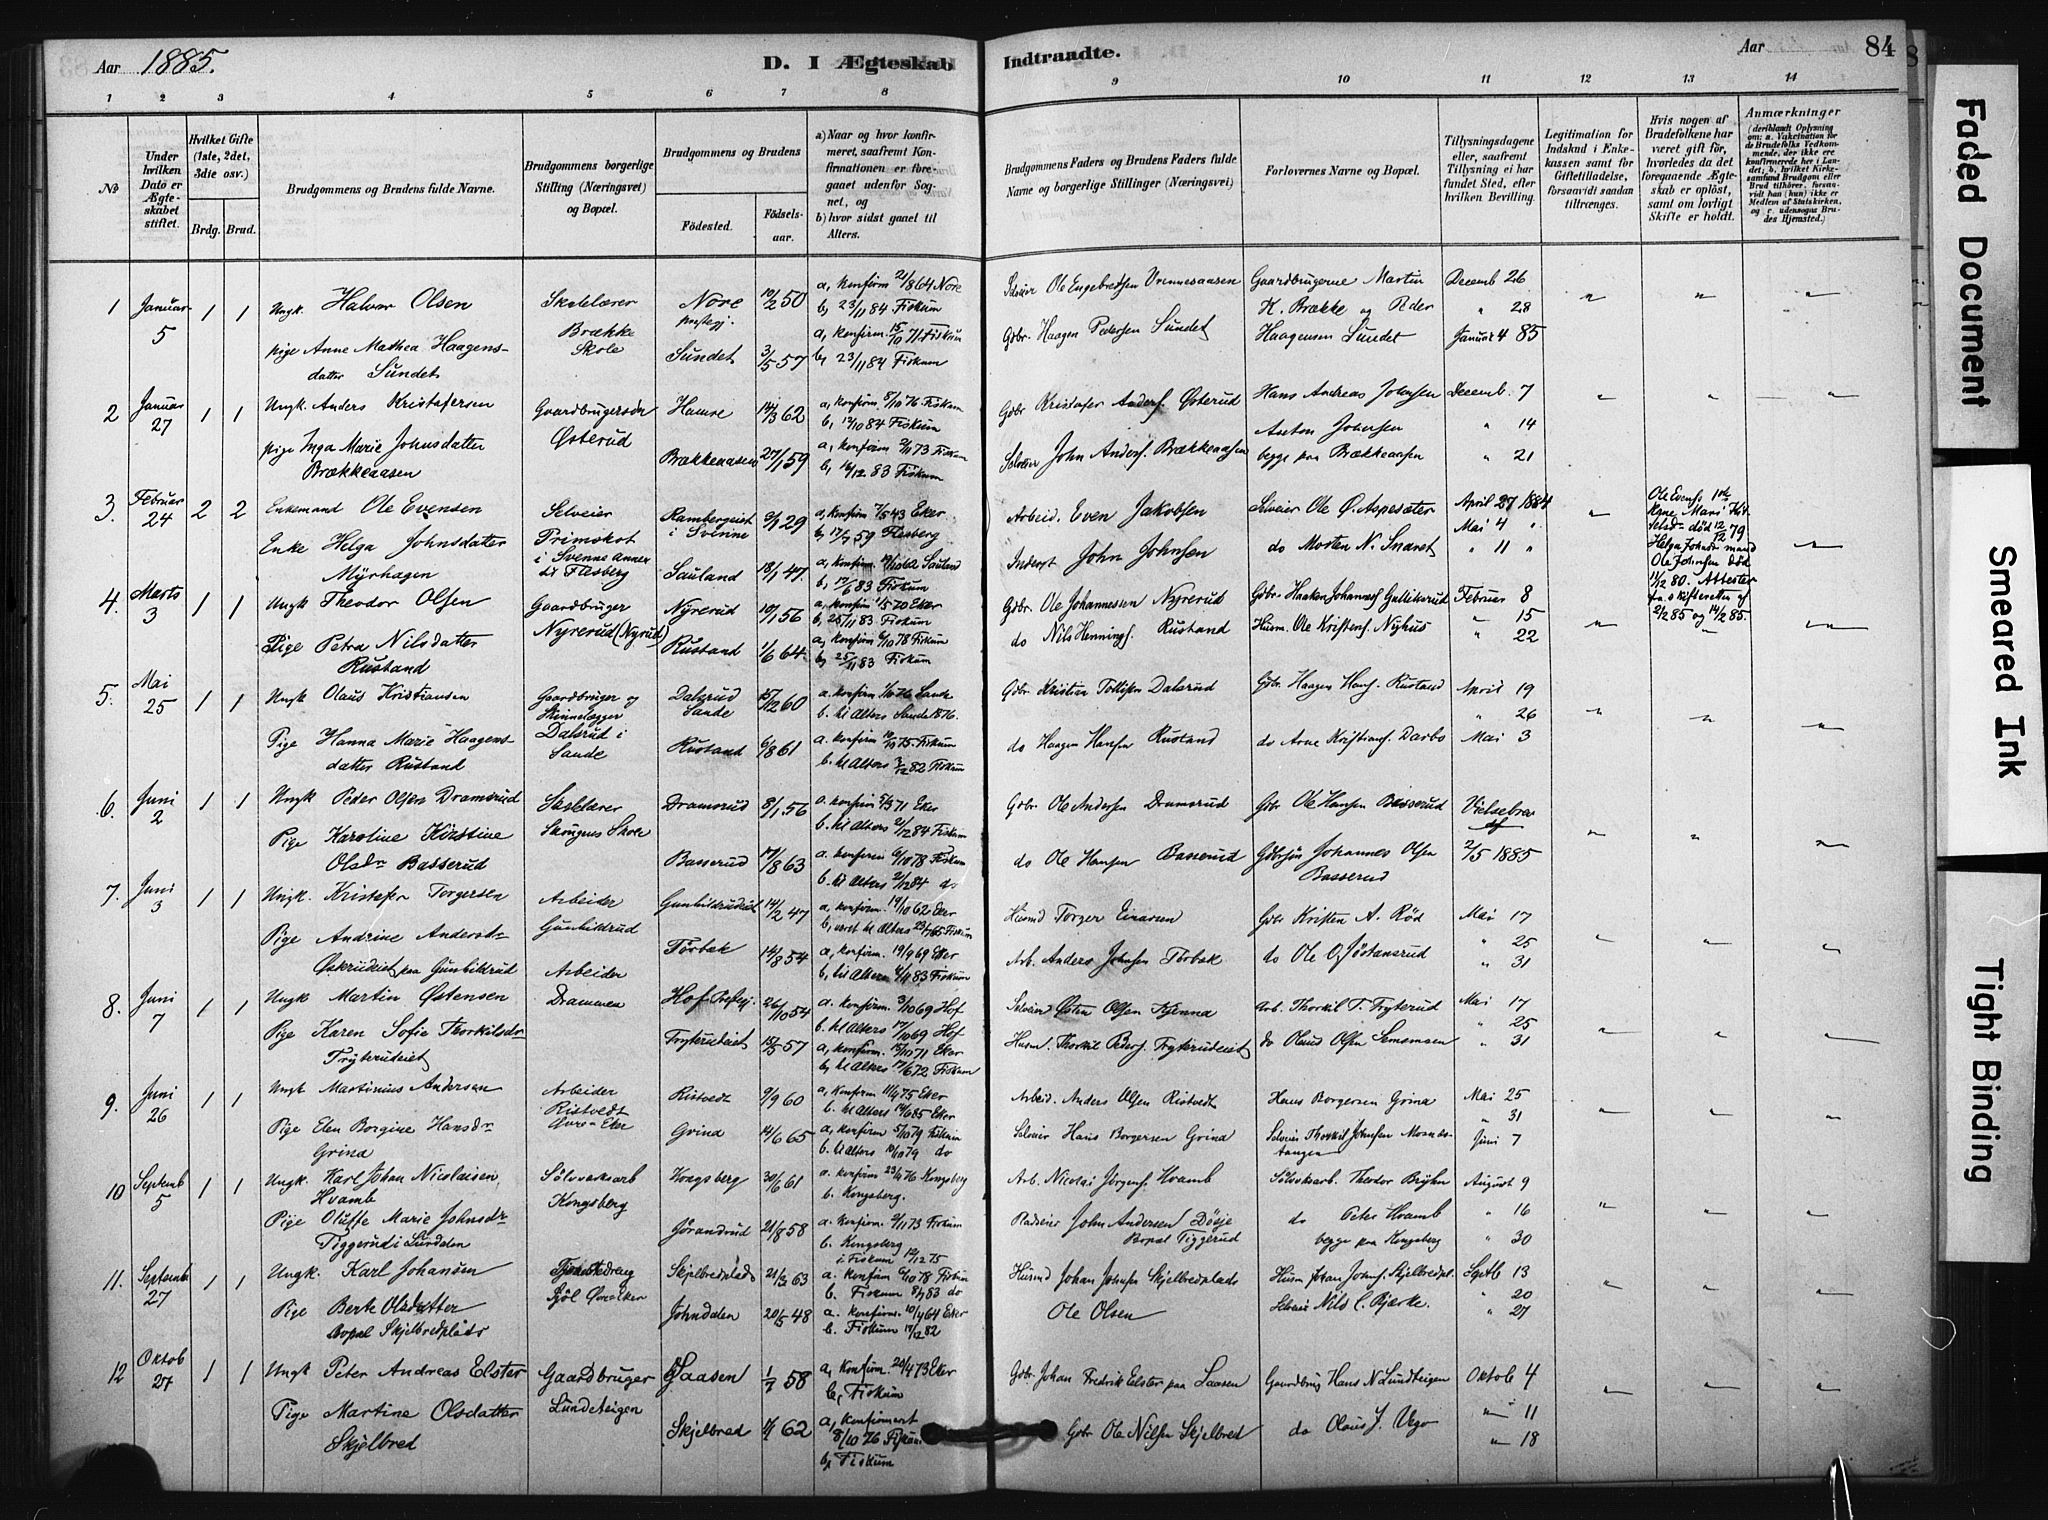 Aar 1885.
D. I Ægteskab
Indtraadte.
Aar
84
1 2 3 4 5 6 7 8 9 10 11 12 13 14
№
Under hvilken Dato er Ægteskabet stiftet.
Hvilket Gifte (1ste, 2det, 3die osv.)
Brdg. Brud.
Brudgommens og Brudens fulde Navne.
Brudgommens borgerlige Stilling (Næringsvei) og Bopæl.
Brudgommens og Brudens
Födested.
Födselsaar.
a) Naar og hvor konfirmeret, saafremt Konfirmationen er foregaaet udenfor Sognet, og
b) hvor sidst gaaet til Alters.
Brudgommens Faders og Brudens Faders fulde Navne og borgerlige Stillinger (Næringsvei)
Forlovernes Navne og Bopæl.
Tillysningsdagene eller, saafremt Tillysning ei har fundet Sted, efter hvilken Bevilling.
Legitimation for Indskud i Enkekassen samt for Giftetilladelse, forsaavidt saadan tiltrænges.
Hvis nogen af Brudefolkene har været gift för, hvorledes da det foregaaende Ægteskab er oplöst, samt om lovligt Skifte er holdt.
Anmærkninger
(deriblandt Oplysning om: a. Vakcination for de Brudefolks Vedkommende, der ikke ere konfirmerede her i Landet; b. hvilket Kirkesamfund Brudgom eller Brud tilhörer, forsaavidt han (hun) ikke er Medlem af Statskirken, og c. udensogns Brudes Hjemsted.)
1 Januar 5 1 1 Ungk. Halvor Olsen Skolelærer Brække Skole Nore prestegj. 10/2 50 a, konfirm 21/8 64 Nore b, 23/11 84 Fiskum Ole Engebretsen Vrennesaasen Gaardbrugerne Martin H. Brække og Peder Haagensen Sundet Decemb 26 " 28 Januar 4 85
pige Anne Mathea Haagensdatter Sundet Sundet 3/5 57 a, konfirm. 15/10 71 Fiskum b, 23/11 84 Fiskum Gdbr. Haagen Pedersen Sundet
2 Januar 27 1 1 Ungk. Anders Kristofersen Gaardbrugersøn Østerud Hamre 14/3 62 a, konfirm 8/10 76 Fiskum b, 12/10 84 Fiskum Gdbr Kristofer Anders. Østerud Hans Andreas Johnsen Anton Johnsen begge paa Brækkeaasen Decemb. 7 " 14 " 21
pige Inga Marie Johnsdatter Brækkeaasen Brækkeaasen 27/1 59 a, konfirm 2/11 73 Fiskum b, 16/12 83 Fiskum Selveier John Anders. Brækkeaasen
3. Februar 24 2 2 Enkemand Ole Evensen Selveier Primskot i Svenne Annex til Flesberg Rambergeiet i Svenne 3/1 29 a, konfirm 7/5 43 Eker b, 17/7 59 Flesberg Arbeid. Even Jakobsen Selveier Ole O. Aspesæter do Morten N. Snaret April 27 1884 Mai 4 " " 11 "
Enke Helga Johnsdatter Myrhagen Sauland 18/1 47. Sauland b, 17/6 83 Fiskum Inderst John Johnsen
Ole Evens. 1ste Kone Mari Kitelsdr død 12/12 79 Helga Johnsdr mand Ole Johnsen død 11/12 80. Attester fra skifteretten af 2/2 85 og 14/2 85.
4. Marts 3 1 1 Ungk Theodor Olsen Gaardbruger Nyrerud (Nyrud) Nyrerud 10/1 56 a, konfirm 1/5 70 Eker b, 25/11 83 Fiskum Gdbr. Ole Johannesen Nyrerud Gdbr. Haaken Johannes. Gullikserud Husm. Ole Kristens. Nyhus Februar 8 " 15 " 22
Pige Petra Nilsdatter Rustand Rustand 1/6 64. a, konfirm 6/10 78 Fiskum b, 25/11 83 Fiskum do Nils Hennings. Rustand
5. Mai 25 1 1 Ungk Olaus Kristiansen Gaardbruger og Dalsrud i Sande Dalsrud Sande 15/12 60 a. konfirm 1/10 76 Sande b. til Alters Sande 1876. Gdbr Kristian Dalsrud Gdbr. Haagen Hans. Rustand do Arne Kristians. Darbo April 19 " 26 Mai 3
Pige Hanna Marie Haagensdatter Rustand Rustand 6/8 61 a. konfirm 10/10 75 Fiskum b. til Alters 3/12 82 Fiskum do Haagen Hansen Rustand
6. Juni 2 1 1 Ungk Peder Olsen Dramsrud Skolelærer Skougens Skole Dramsrud 8/1 56 a. konfirm 5/3 71 Eker b. til Alters 2/12 84 Fiskum Gdbr. Ole Andersen Dramsrud Gdbr Ole Hansen Basserud Gdbrsøn Johannes Olsen Basserud Vielsebrev af 2/5 1885
Pige Karoline Kirstine Olsdr Basserud Basserud 17/8 63 a. konfirm 6/10 78 Fiskum b. til Alters 2/12 84 do do Ole Hansen Basserud
7. Juni 3 1 1 Ungk. Kristofer Torgersen Arbeider Gunhildrud Gunhildrudeiet 14/2 47 a, konfirm. 19/10 62 Eker b, været til Alters 23/7 65 Fiskum Husmd Torger Einarsen Gdbr Kristen A. Rød do Ole O. Jöstansrud Mai 17 " 25 " 31
Pige Andrine Andersdr Østerudeiet paa Gunhildrud Torbæk 14/8 54 a, konfirm. 19/9 69 Eker b, til Alters 4/11 83 Fiskum Arb. Anders Johnsen Torbæk
8. Juni 7 1 1 Ungk Martin Østensen Arbeider Drammen Hof Prestegj. 26/10 54 a. konfirm. 3/10 69 Hof b. til Alters 17/10 69 Hof Selveier Østen Olsen Hjenna Arb. Thorkil T. Fryterud do Olaus Olsen Mai 17 " 25 " 31
Pige Karen Sofie Thorkilsdr Fryterudeiet Fryterudeiet 15/5 57 a, konfirm. 15/10 71 Eker b, til Alters 17/6 72 Fiskum Husm. Thorkil Peders. Fryterudeiet
9. Juni 26 1 1 Ungk Martinius Andersen Arbeider Ristvedt Øvre-Eker Ristvedt 9/9 60 a, konfirm 11/4 75 Eker b. til Alters 14/6 85 Eker Arbeid. Anders Olsen Ristvedt Hans Borgersen Grina Selveier Thorkil Johnsen Mai 25 " 31 Juni 7
Pige Elen Borgine Hansdr Grina Grina 14/6 65 a, konfirm 5/10 79 Fiskum b. til Alters 19/10 79 do Selveier Hans Borgersen Grina
10 Septemb 5 1 1 Ungk. Karl Johan Nicolaisen Hvamb Sölvverksarb Kongsberg Kongsberg 30/6 61 a. konfirm 23/4 76 Kongsberg b. Kongsberg. Arb. Nicolai Jørgens. Hvamb Sölvvksarb. Theodor do Peter Hvamb begge paa Kongsberg August 9 " 16 " 30
Pige Oluffe Marie Johnsdr Tiggerud i Lurdalen Jörandrud 21/8 58 a. konfirm. 2/11 73 Fiskum b. Kongsberg i Fiskum 12/12 75 Pladseier John Andersen Dösje Bopæl Tiggerud
11. Septemb 27 1 1 Ungk. Karl Johansen Tjenestedreng Øvre Eker Skjelbredplads 21/2 63 a. konfirm 6/10 78 Fiskum b. Fiskum 8/7 83 do Husmd Johan Johnsen Skjelbredplads Husm Johan Johns. Skjelbredpl. Selveier Nils C. Bjerke. Septb 13 " 20 " 27
Pige Berte Olsdatter bopæl Skjelbredplads Johndalen 20/5 48 a. konfirm. 10/4 64 Eker b. Fiskum 17/12 82 Ole Olsen
12 Oktob 27 1 1 Ungk Peter Andreas Elster Gaardbruger Lundeteigen Saasen 1/7 58 a, konfirm. 20/4 73 Eker b, Fiskum Gdbr. Johan Fredrik Elster paa Saasen Gaardbrug Hans N Lundteigen do Olaus J. Vego Oktob 4 " 11 " 18
Pige Martine Olsdatter Skjelbred Skjelbred 62 a, konfirmert 8/10 76 Fiskum b, Fiskum Gdbr Ole Nilsen Skjelbred
Faded Document
Smeared Ink
Tight Binding